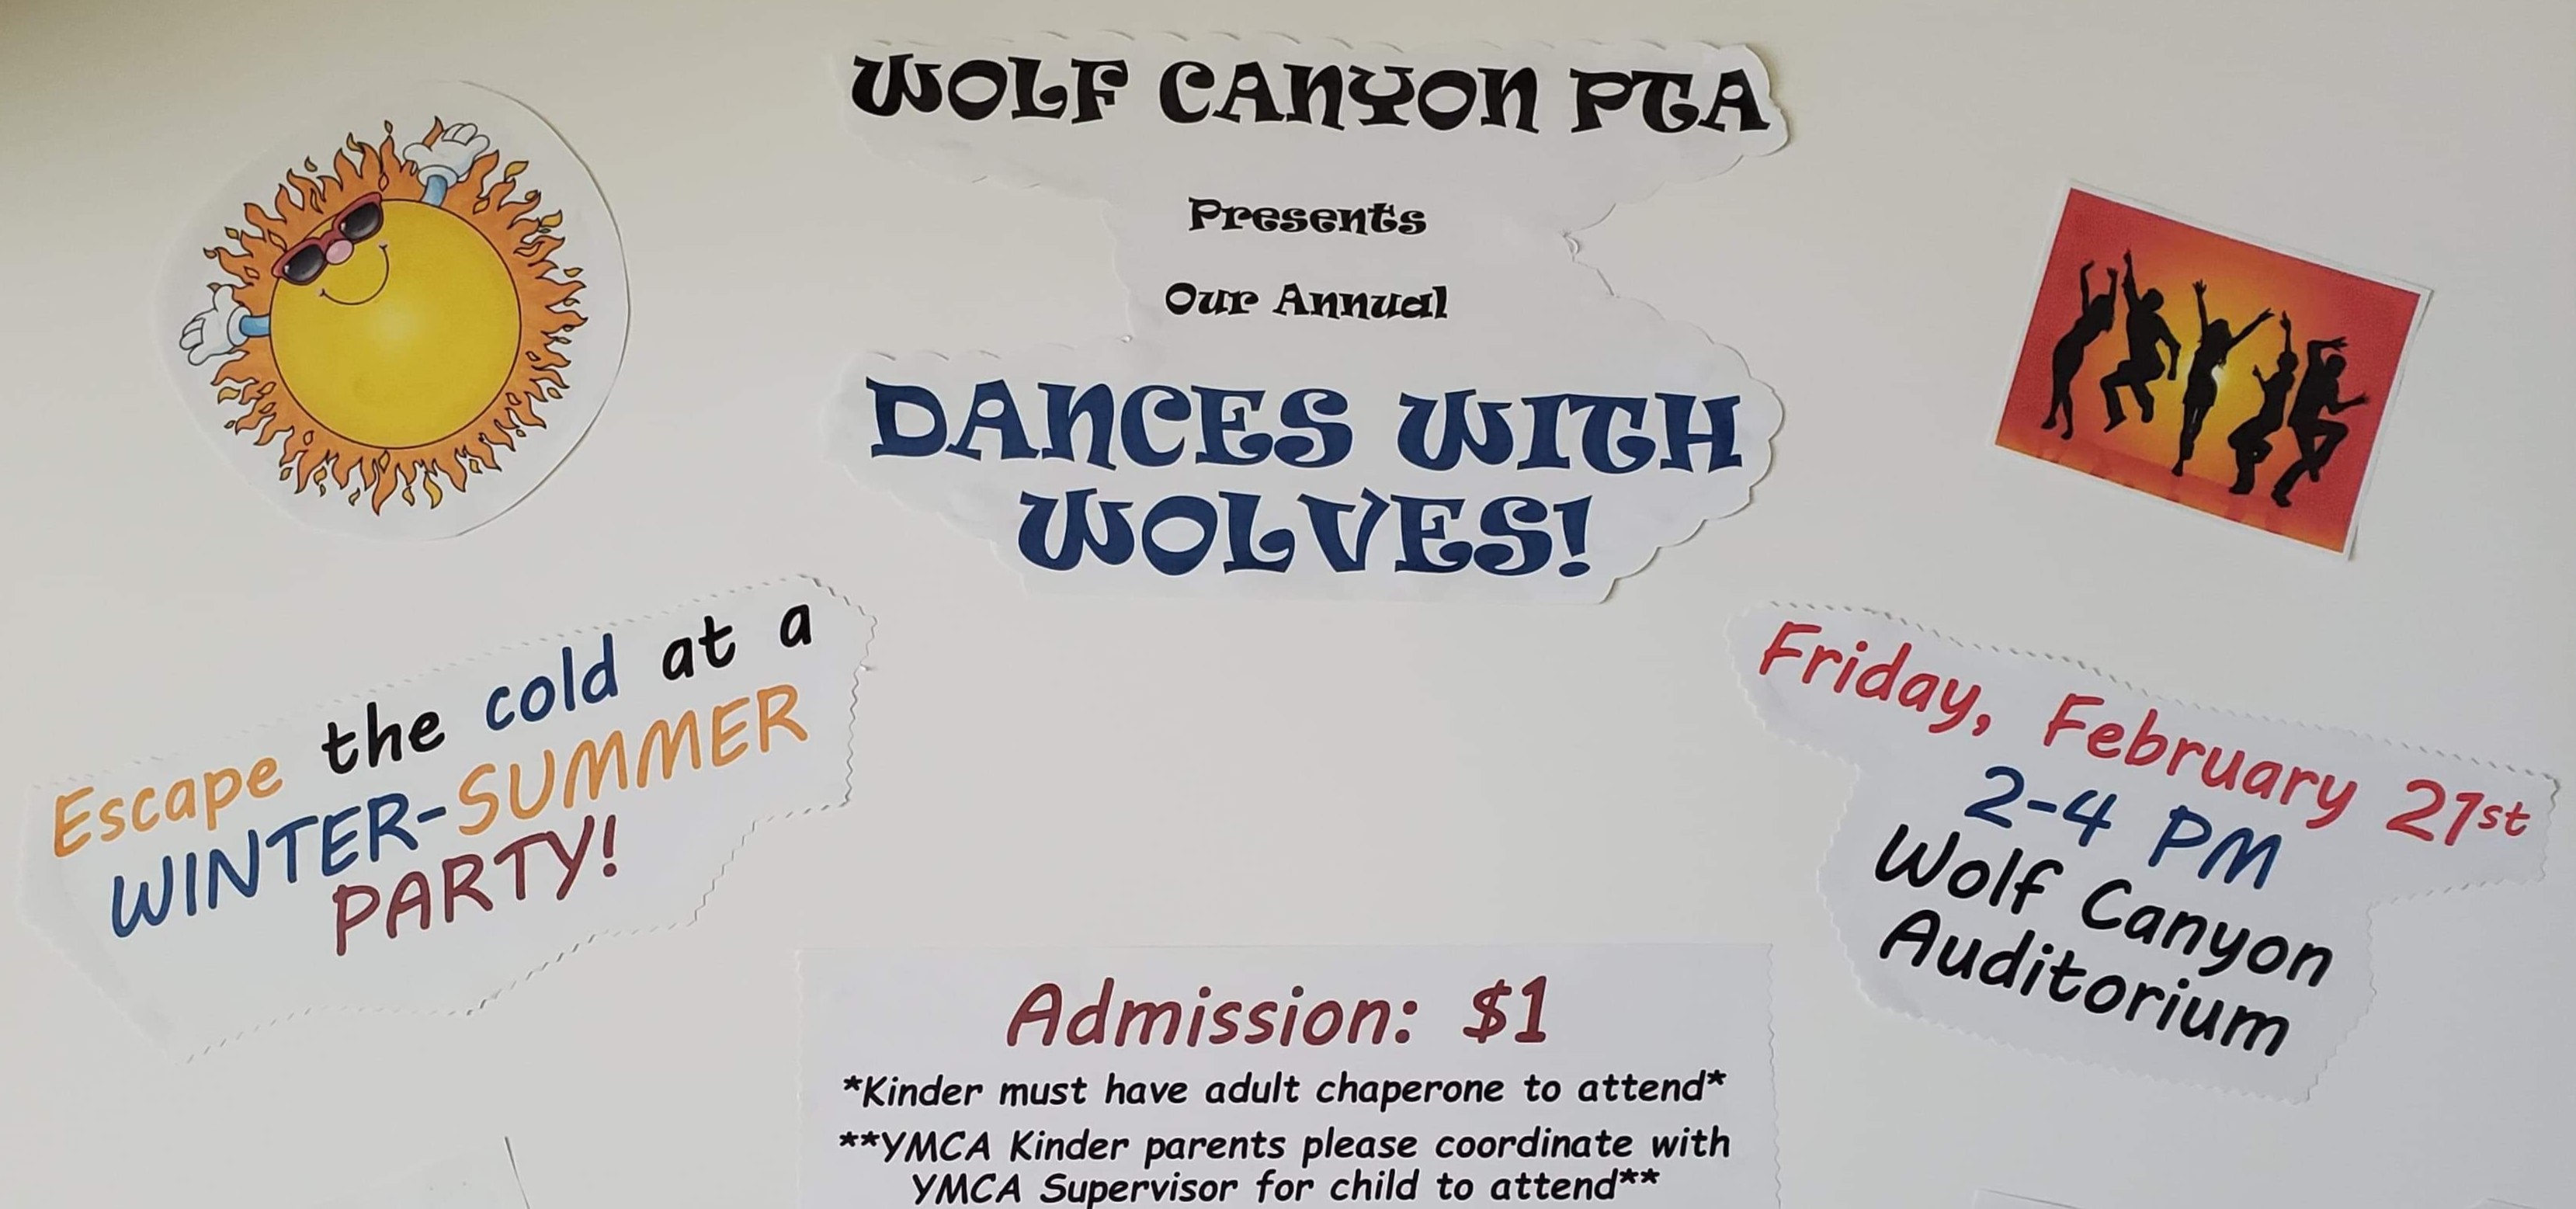 WOLF CANYON PTA
Presents
Our Annual
DANCES WITH
WOLVES!
Escape the cold at a
WINTER-SUMMER
PARTY!
Friday, February 21st
2-4 PM
Wolf Canyon
Auditorium
Admission: $1
*Kinder must have adult chaperone to attend*
**YMCA Kinder parents please coordinate with
YMCA Supervisor for child to attend**